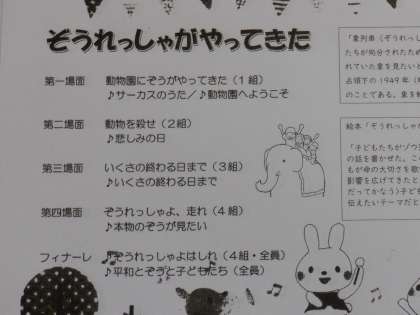 ぞうれっしゃがやってきた
第一場面 動物園にぞうがやってきた(1組)
♪サーカスのうた/♪動物園へようこそ
第二場面 動物を殺せ(2組)
♪悲しみの日
第三場面 いくさの終わる日まで(3組)
♪いくさの終わる日まで
第四場面 ぞうれっしゃよ、走れ(4組)
♪本物のぞうが見たい
フィナーレ ♪ぞうれっしゃよはしれ(4組・全員)
♪平和とぞうと子どもたち(全員)
「象列車(ぞうれっし
たちが処分されたため
れていた象を見たいと
占領下の1949年(
のことである。象を
絵本「ぞうれっしゃ
「子どもたちがゾウ
の話を書かせた。こ
もが命の大切さを歌
影響を広げてきたと
だってかなう)子ども
伝えたいテーマだと